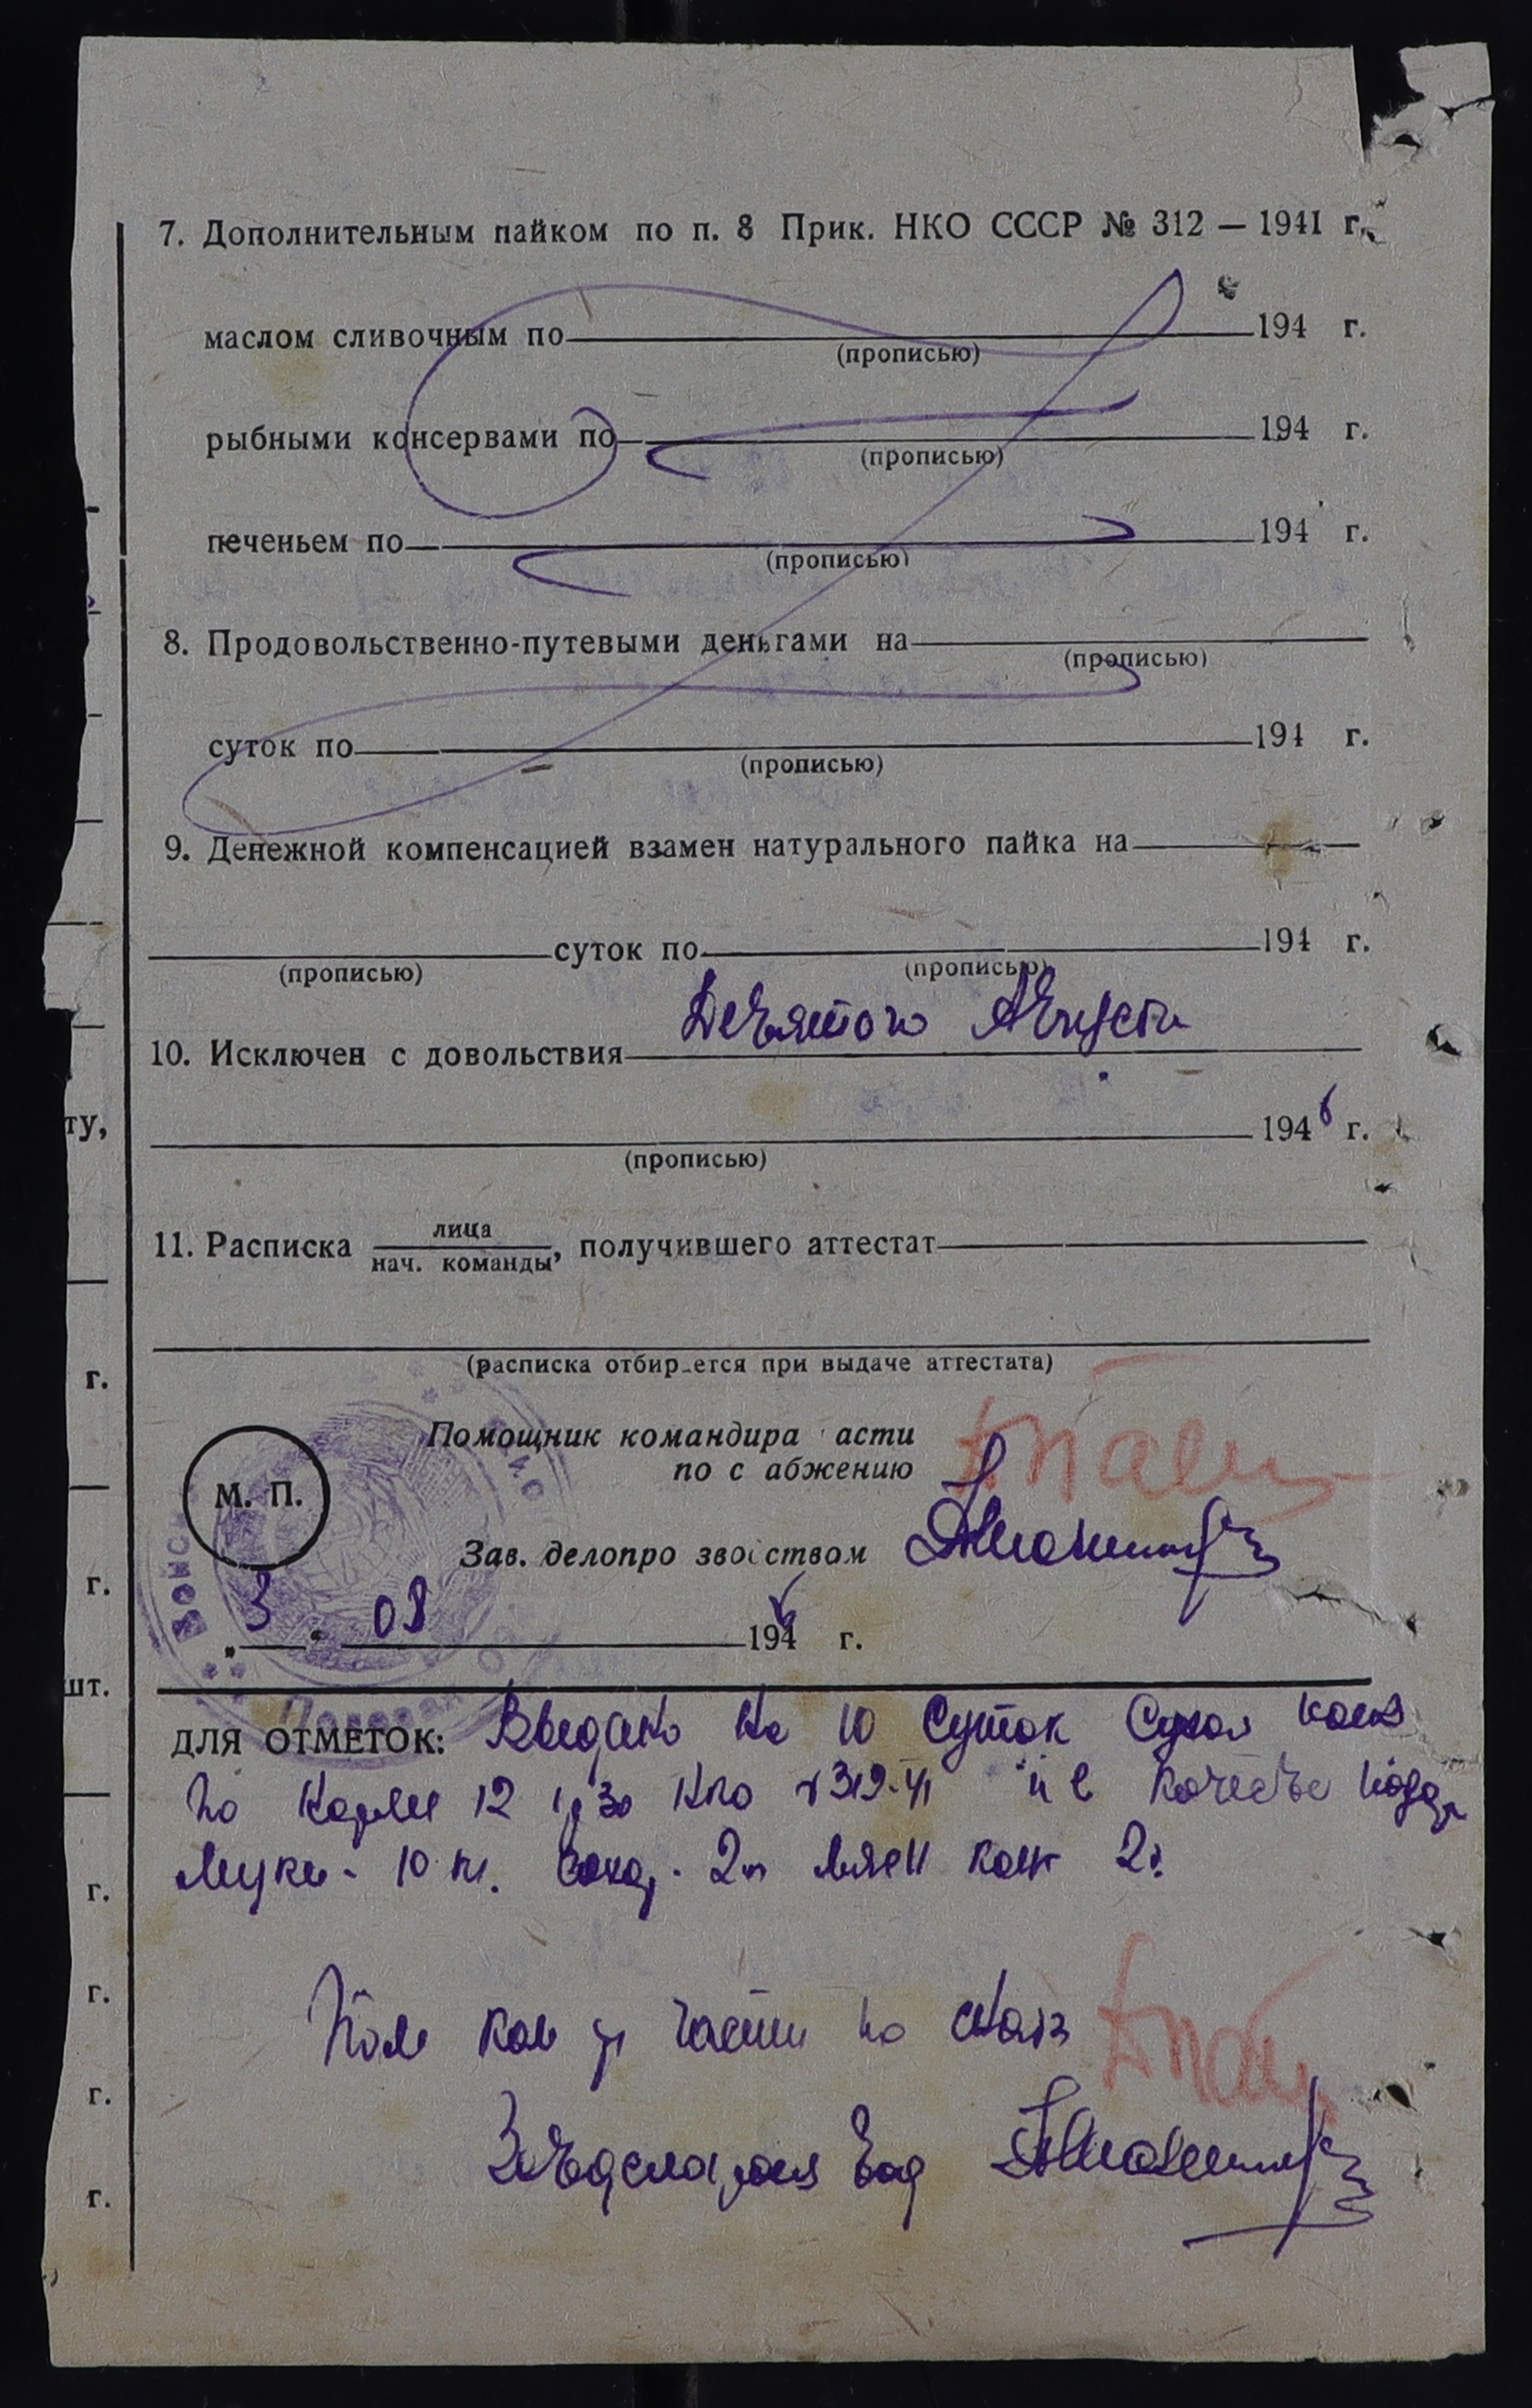 7. Дополнительным пайком по п. 8 Прик. НКО СССР № 312 — 1941 г.
маслом сливочным по 194 г.
(прописью)
рыбными консервами по 194 г.
(прописью)
печеньем по 194 г.
(прописью)
8. Продовольственно-путевыми деньгами на
(прописью)
суток по 194 г.
(прописью)
9. Денежной компенсацией взамен натурального пайка на
суток по 194 г.
(прописью) (прописью)
10. Исключен с довольствия Девятого Августа
ту,
1946 г.
(прописью)
11. Расписка лица / нач. команды, получившего аттестат
(расписка отбир ется при выдаче аттестата)
г.
Помощник командира асти
по с абжению
М. П.
Зав. делопро зво ством
г.
3 08 1946 г.
шт.
ДЛЯ ОТМЕТОК: Выдано на 10 Суток Сухой
по норме 12 НКО 312-41 и в качестве
г.
Муки - 10 кг. Сахар. 2 мясн 2
г.
Пом ком части по снаб
г.
г.